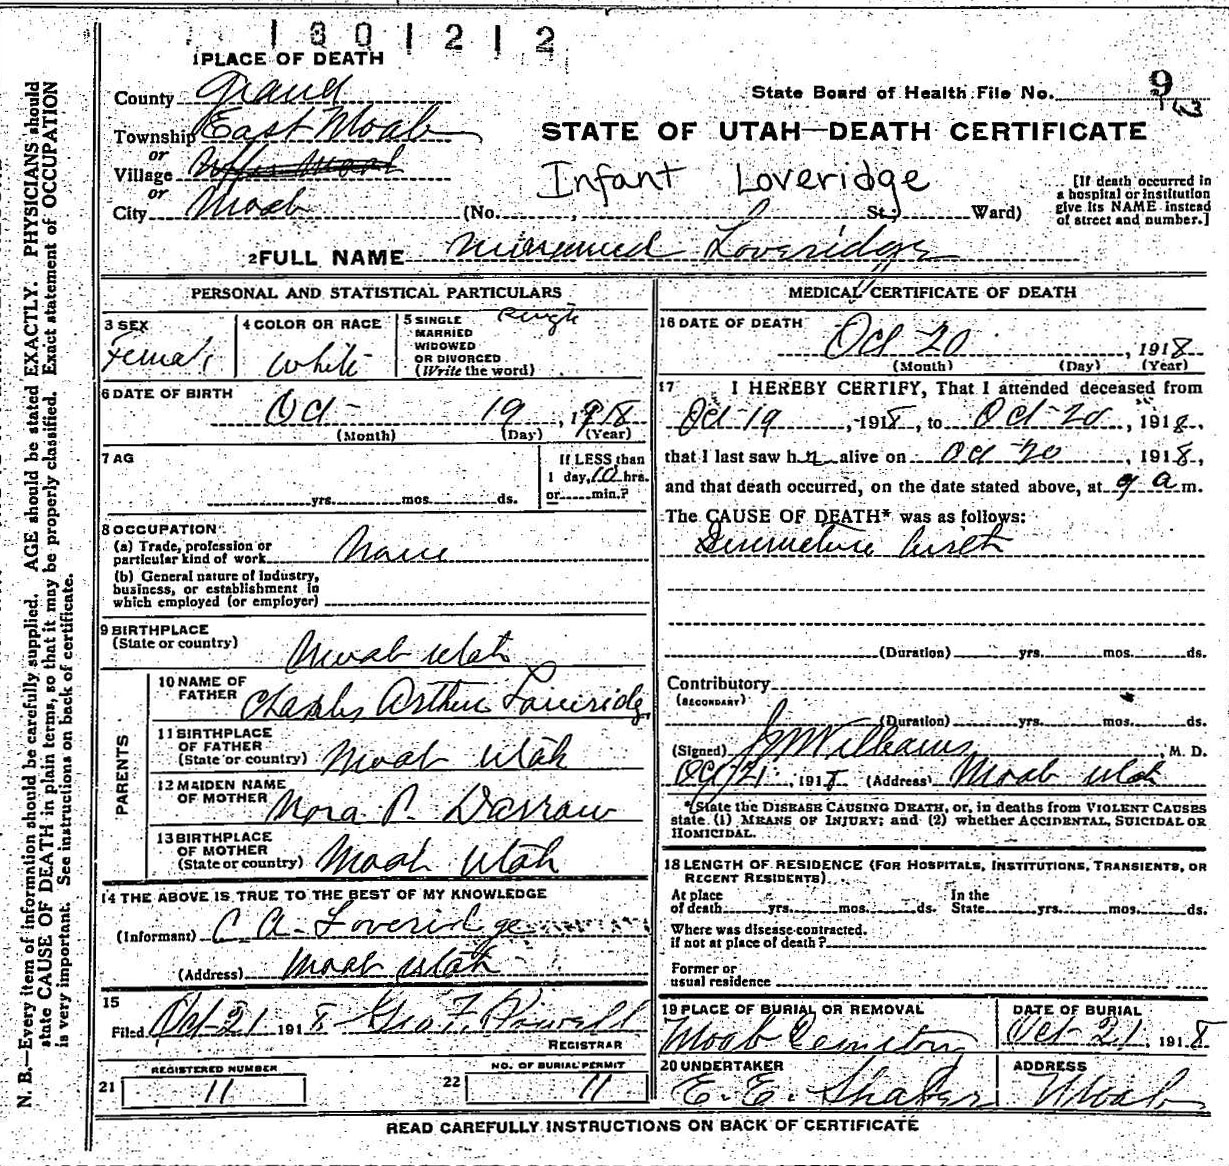 1801212
1 PLACE OF DEATH
County Grand
State Board of Health File No. 9
163
Township East Moab
STATE OF UTAH—DEATH CERTIFICATE
or
Village
or
Infant Loveridge
[If death occurred in a hospital or institution give its NAME instead of street and number.]
City Moab (No. , St.; Ward)
2 FULL NAME Loveridge
PERSONAL AND STATISTICAL PARTICULARS
3 SEX
Female
4 COLOR OR RACE
White
5 SINGLE MARRIED WIDOWED OR DIVORCED (Write the word)
Single
6 DATE OF BIRTH
Oct 19, 1918
(Month) (Day) (Year)
7 AG
yrs. mos. ds.
If LESS than
1 day, 10 hrs.
or min.?
8 OCCUPATION
(a) Trade, profession or
particular kind of work None
(b) General nature of industry,
business, or establishment in
which employed (or employer)
9 BIRTHPLACE
(State or country) Moab Utah
PARENTS
10 NAME OF
FATHER Charles Arthur Loveridge
11 BIRTHPLACE
OF FATHER
(State or country) Moab Utah
12 MAIDEN NAME
OF MOTHER Nora P. Darrow
13 BIRTHPLACE
OF MOTHER
(State or country) Moab Utah
14 THE ABOVE IS TRUE TO THE BEST OF MY KNOWLEDGE
(Informant) C A Loveridge
(Address) Moab Utah
15
Filed Oct 21 1918 Geo F. Powell
REGISTRAR
REGISTERED NUMBER
21 11
NO. OF BURIAL PERMIT
22 11
MEDICAL CERTIFICATE OF DEATH
16 DATE OF DEATH
Oct 20, 1918
(Month) (Day) (Year)
17 I HEREBY CERTIFY, That I attended deceased from
Oct 19, 1918, to Oct 20, 1918,
that I last saw her alive on Oct 20, 1918,
and that death occurred, on the date stated above, at 9 a m.
The CAUSE OF DEATH* was as follows:
Premature birth
(Duration) yrs. mos. ds.
Contributory
(SECONDARY)
(Duration) yrs. mos. ds.
(Signed) J W Williams, M. D.
Oct 21, 1918 (Address) Moab Utah
*(State the DISEASE CAUSING DEATH, or, in deaths from VIOLENT CAUSES
state (1) MEANS OF INJURY; and (2) whether ACCIDENTAL, SUICIDAL OR
HOMICIDAL.
18 LENGTH OF RESIDENCE (FOR HOSPITALS, INSTITUTIONS, TRANSIENTS, OR
RECENT RESIDENTS)
At place
of death yrs. mos. ds.
In the
State yrs. mos. ds.
Where was disease contracted,
if not at place of death?
Former or
usual residence
19 PLACE OF BURIAL OR REMOVAL
Moab Cemetery
DATE OF BURIAL
Oct 21, 1918
20 UNDERTAKER
E. E. Shafer
ADDRESS
Moab
READ CAREFULLY INSTRUCTIONS ON BACK OF CERTIFICATE
N. B.—Every item of information should be carefully supplied. AGE should be stated EXACTLY. PHYSICIANS should
state CAUSE OF DEATH in plain terms, so that it may be properly classified. Exact statement of OCCUPATION
is very important. See instructions on back of certificate.